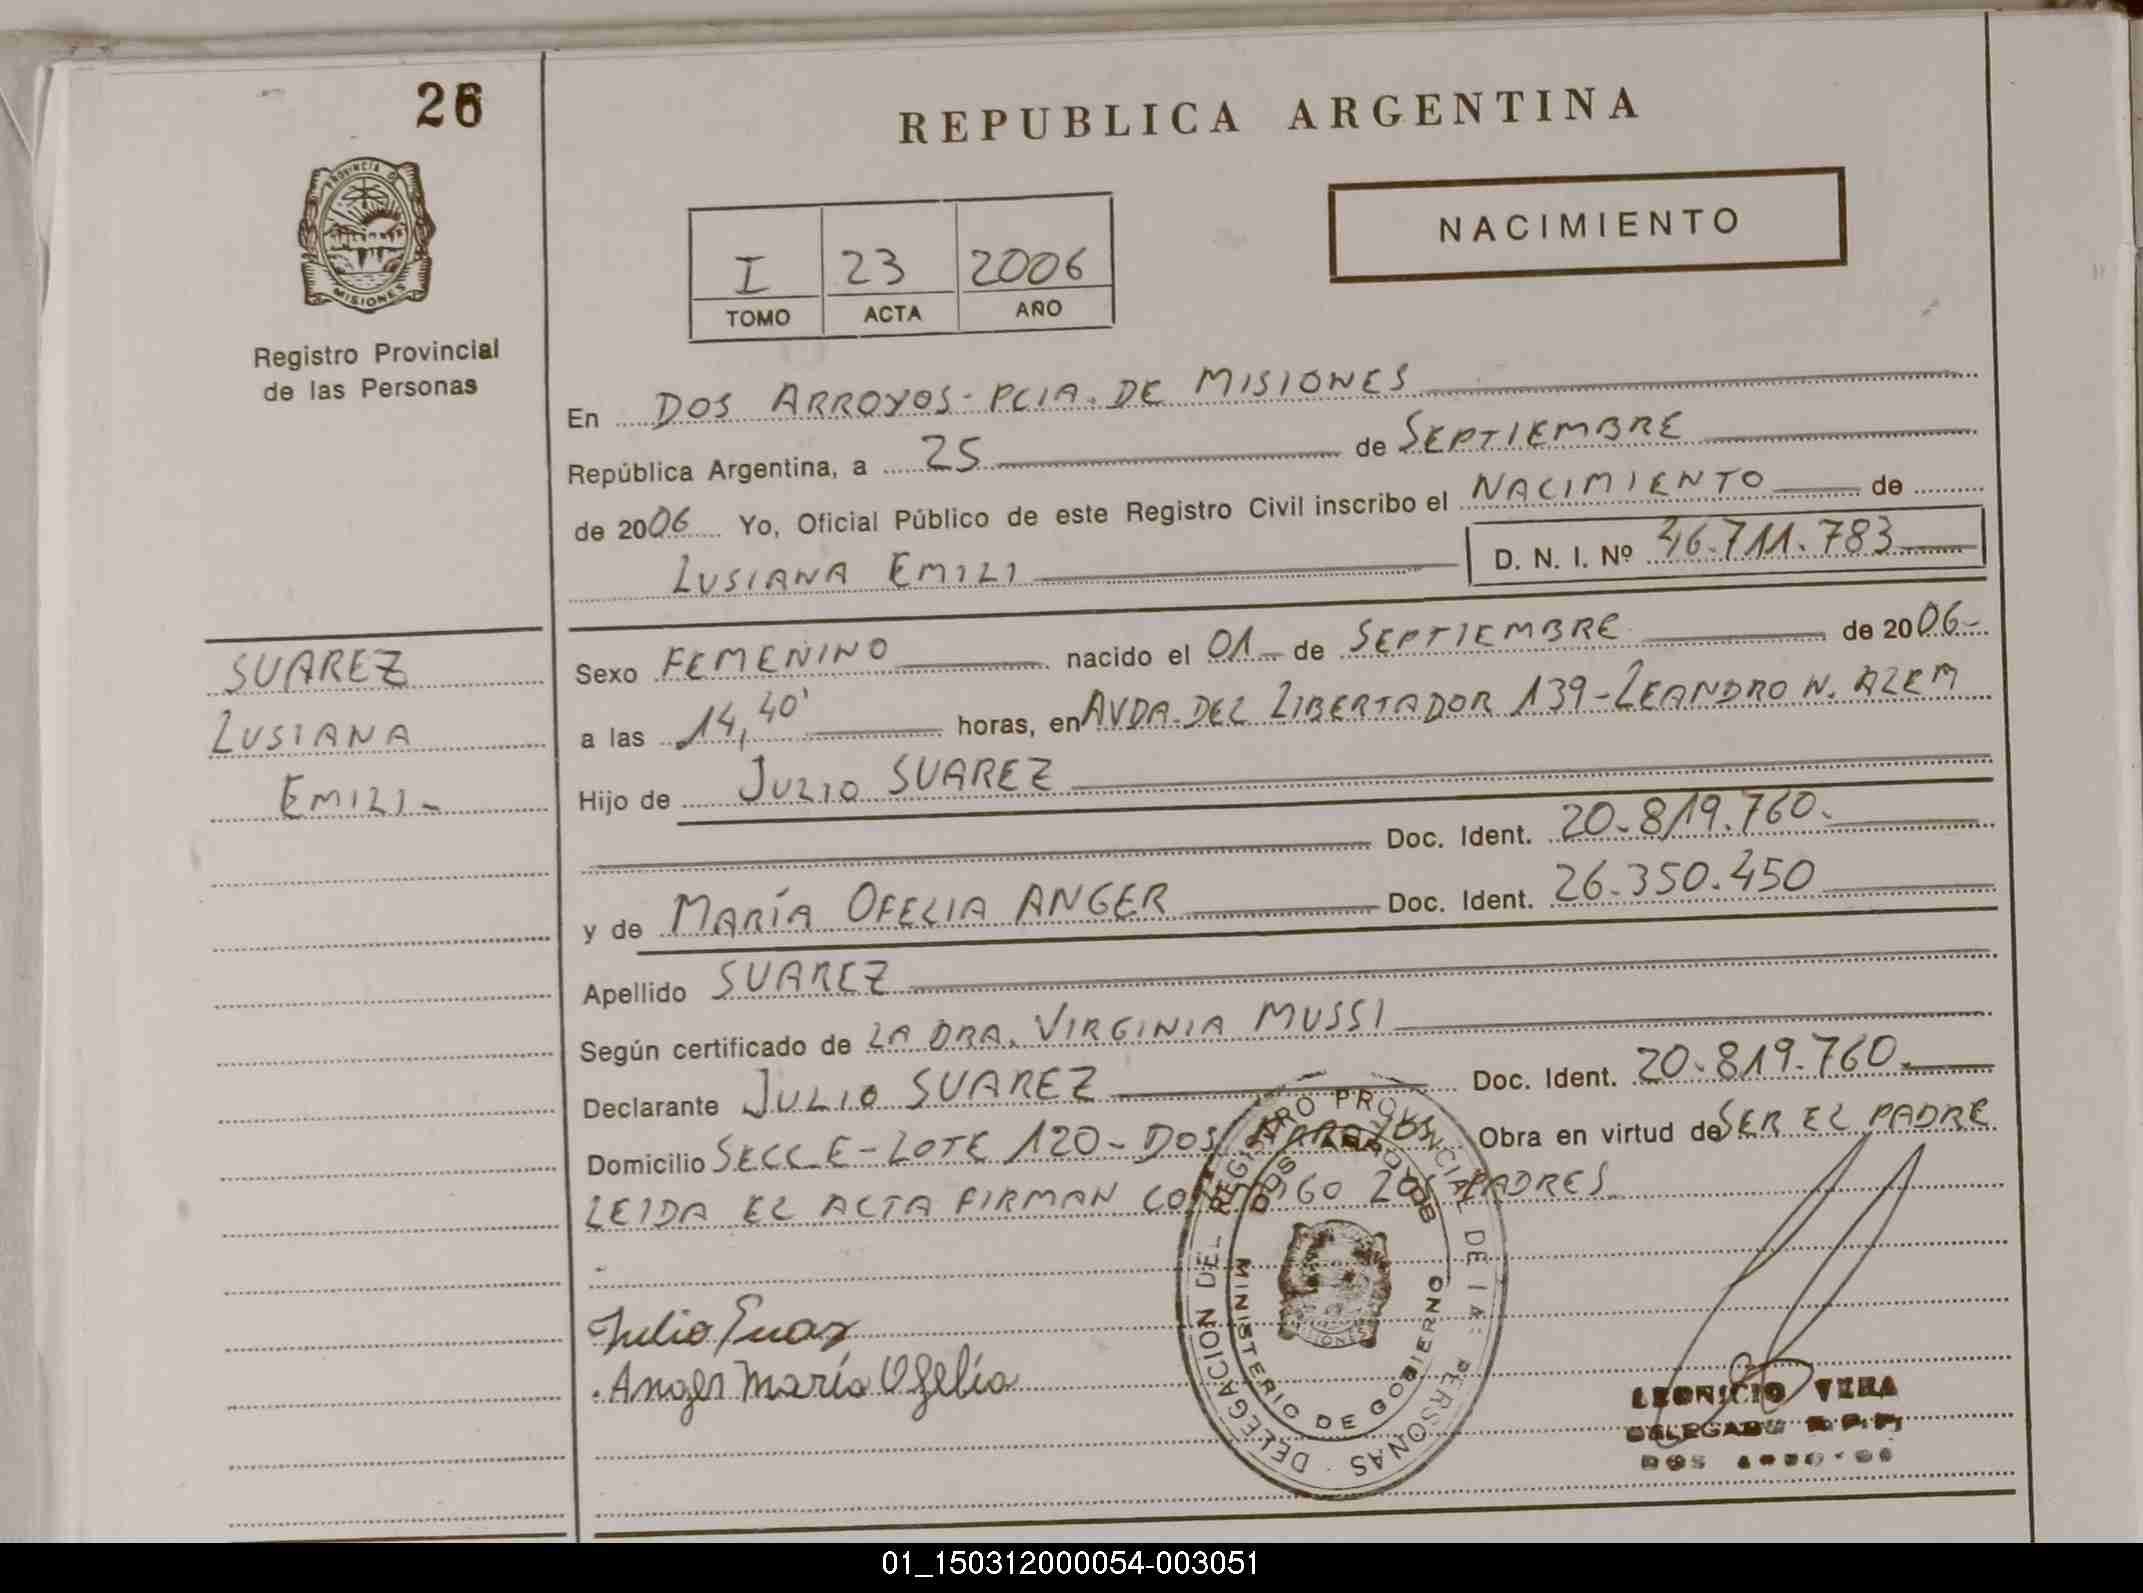 26
REPUBLICA ARGENTINA
PROVINCIA DE
MISIONES
NACIMIENTO
I 23 2006
TOMO ACTA AÑO
Registro Provincial
de las Personas
En DOS ARROYOS - PCIA. DE MISIONES
República Argentina, a 25 de SEPTIEMBRE
de 2006 Yo, Oficial Público de este Registro Civil inscribo el NACIMIENTO de
LUSIANA EMILI D. N. I. Nº 46.711.783
SUAREZ
LUSIANA
EMILI-
Sexo FEMENINO nacido el 01 de SEPTIEMBRE de 2006-
a las 14,40' horas, en AVDA. DEL LIBERTADOR 139-LEANDRO N. ALEM
Hijo de JULIO SUAREZ
Doc. Ident. 20.819.760.
y de MARÍA OFELIA ANGER Doc. Ident. 26.350.450
Apellido SUAREZ
Según certificado de LA DRA. VIRGINIA MUSSI
Declarante JULIO SUAREZ Doc. Ident. 20.819.760.
Domicilio SECC E-LOTE 120-DOS ARROYOS Obra en virtud de SER EL PADRE
LEIDA EL ACTA FIRMAN CONMIGO LOS PADRES
Julio Suarez
Anger María Ofelia
DELEGACION DEL REGISTRO PROVINCIAL DE LAS PERSONAS
DOS ARROYOS
MINISTERIO DE GOBIERNO
LEONICIO VERA
DELEGADO R.P.P.
DOS ARROYOS
01_150312000054-003051